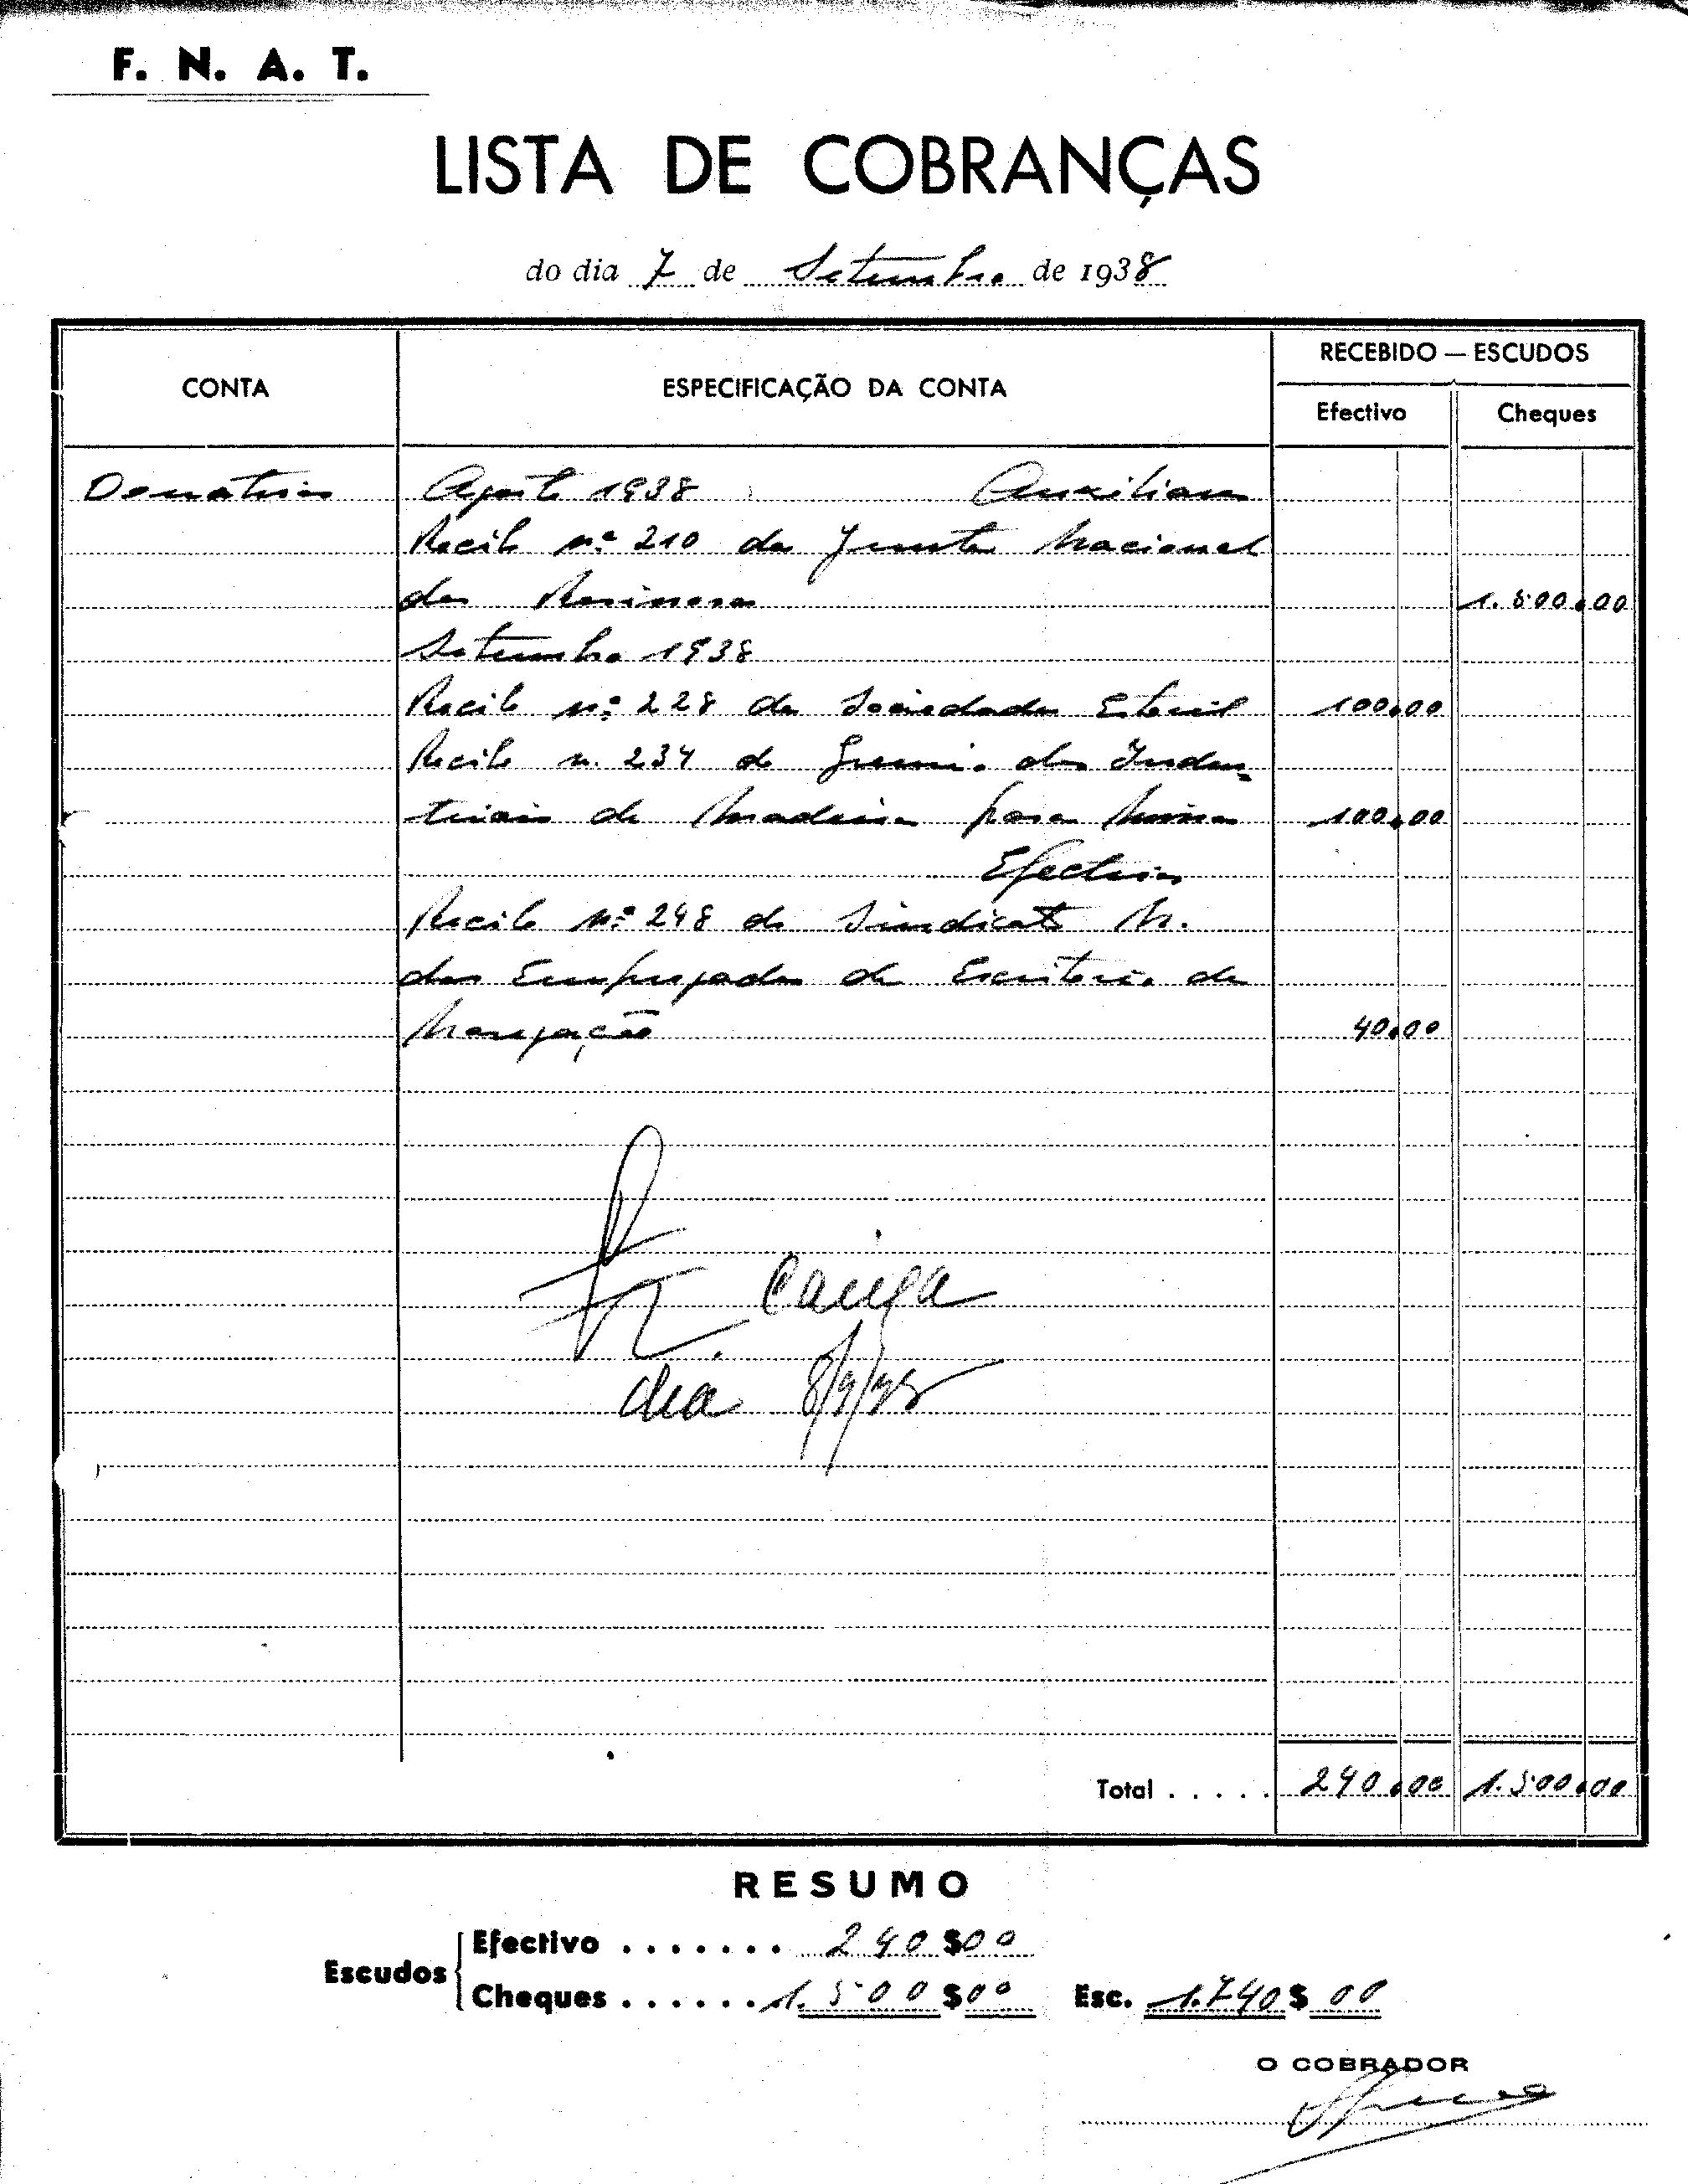 F. N. A. T.
LISTA DE COBRANÇAS
do dia 7 de Setembro de 1938
RECEBIDO — ESCUDOS
CONTA ESPECIFICAÇÃO DA CONTA
Efectivo Cheques
Donativos Agosto 1938 Auxiliares
Recibo n.º 210 da Junta Nacional
dos Resinosos 1.500.00
Setembro 1938
Recibo n.º 228 da Sociedade Estoril 100.00
Recibo n. 234 do Gremio dos Indus-
triais de Madeira para Minas 100.00
Efectivos
Recibo n.º 248 do Sindicato N.
dos Empregados de Escritorio de
Navegação 40.00
dia 8/9/38
Total . . . . . 240.00 1.500.00
RESUMO
Efectivo . . . . . . . 240$00
Escudos
Cheques . . . . . . 1.500$00 Esc. 1.740$00
O COBRADOR